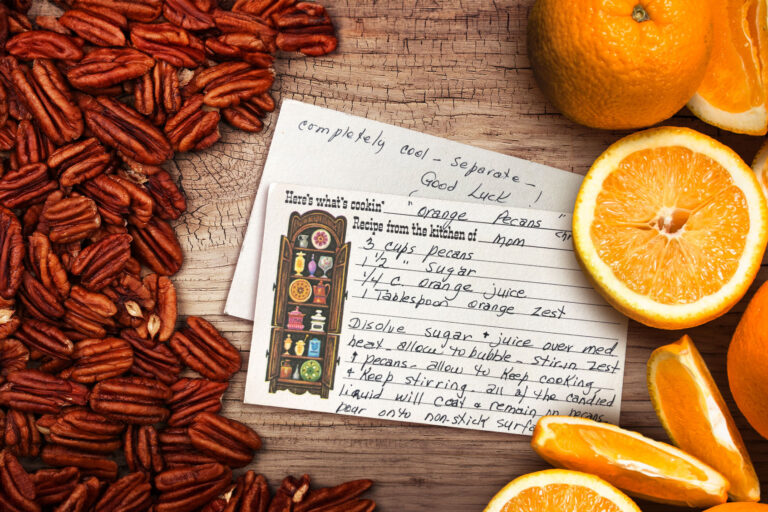 completely cool - separate -
Good Luck !
Here's what's cookin' "Orange Pecans"
Recipe from the kitchen of mom
3 cups pecans
1 1/2 " Sugar
1/4 c. orange juice
1 Tablespoon orange zest
Disolve sugar + juice over med
heat allow to bubble - stir in zest
+ pecans - allow to keep cooking
+ Keep stirring all of the candied
liquid will coat & remain on pecans
Pour onto non-stick surface